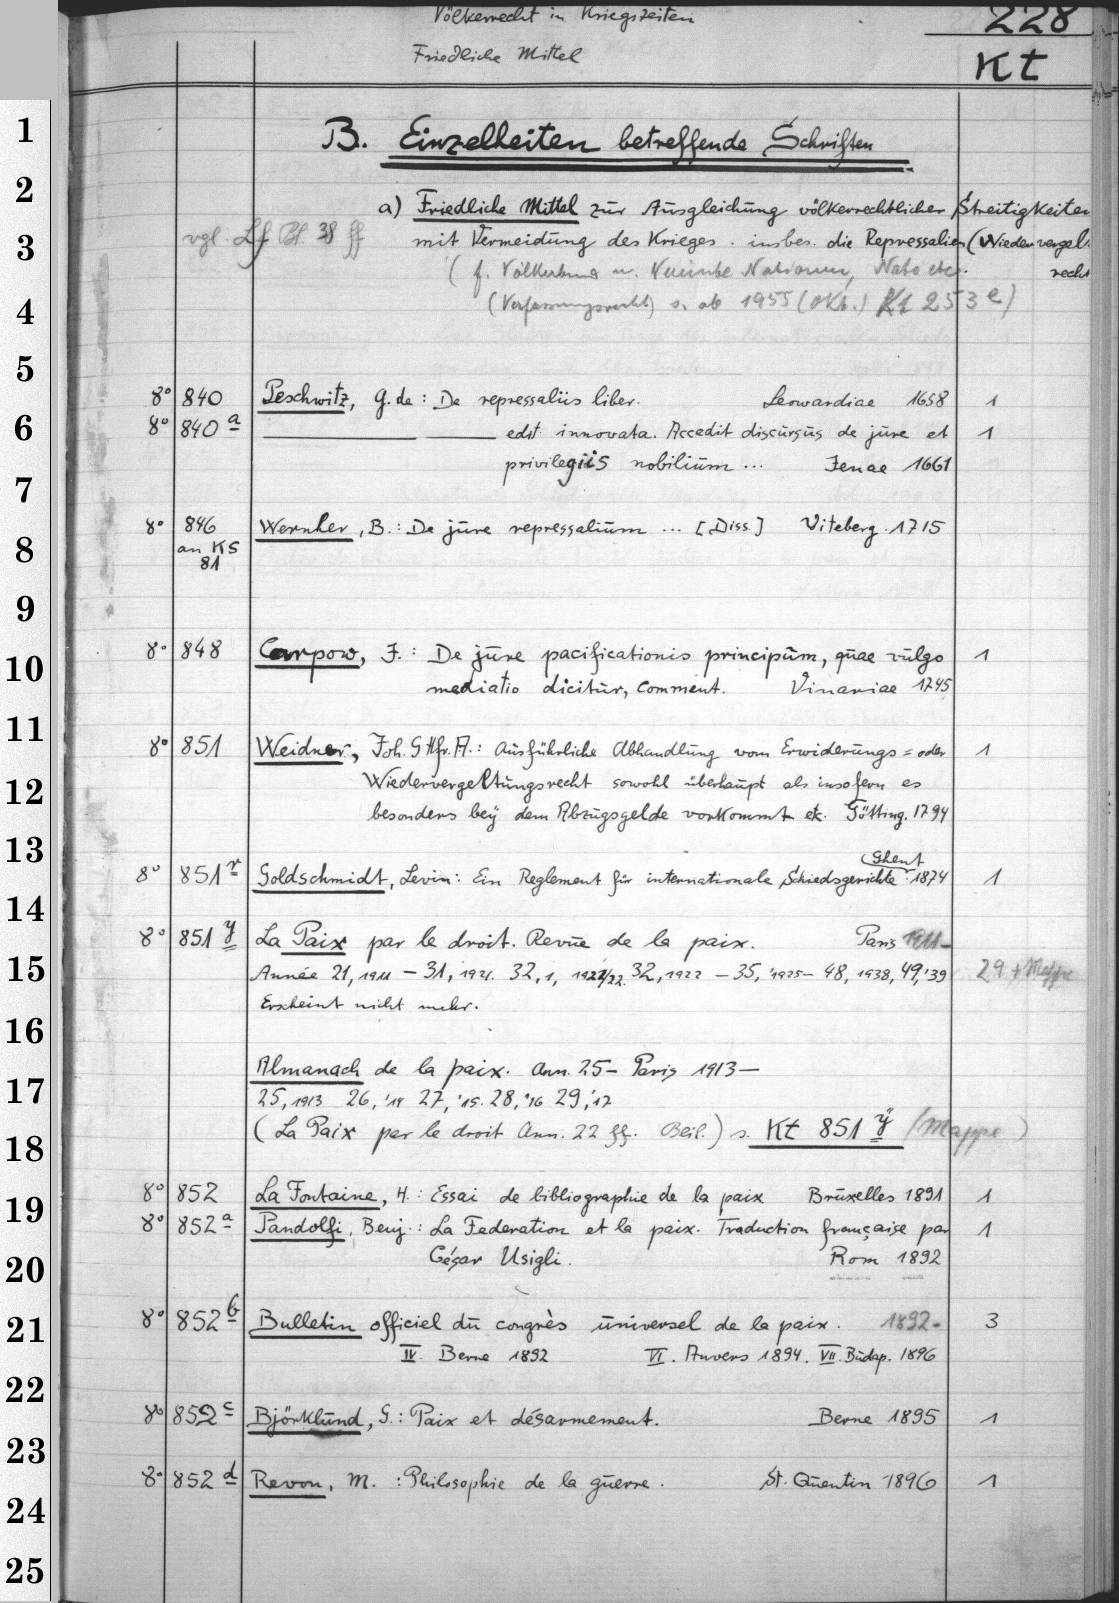 Völkerrecht in Kriegszeiten
228
Friedliche Mittel
Kt
1
B. Einzelheiten betreffende Schriften
2
a) Friedliche Mittel zur Ausgleichung völkerrechtlicher Streitigkeiten
3
vgl. Lf Bl. 38 ff
mit Vermeidung des Krieges. insbes. die Repressalien (Wiedervergel.
recht
(f. Völkerbund u. Vereinte Nationen, Nato etc.
4
(Verfassungsrecht) s. ab 1955 (Okt.) Kt 253 e)
5
8° 840 Peschwitz, G. de: De repressaliis liber. Leowardiae 1658 1
6
8° 840 a edit. innovata. Accedit discursus de jure et 1
privilegiis nobilium ... Jenae 1661
7
8° 846 Wernher, B.: De jure repressalium ... [Diss.] Viteberg. 1715
8
an KS
81
9
8° 848 Carpow, J.: De jure pacificationis principum, quae vulgo 1
10
mediatio dicitur, comment. Vinariae 1745
11
8° 851 Weidner, Joh. Gttfr. A.: Ausführliche Abhandlung vom Erwiderungs= oder 1
12
Wiedervergeltungsrecht sowohl überhaupt als insofern es
besonders bey dem Abzugsgelde vorkommt etc. Götting. 1794
13
Ghent
8° 851 r Goldschmidt, Levin: Ein Reglement für internationale Schiedsgerichte. 1874 1
14
8° 851 y La Paix par le droit. Revue de la paix. Paris 1911-
15
Année 21, 1911 - 31, 1921. 32, 1, 1921/22. 32, 1922 - 35, '1925 - 48, 1938, 49, '39 29 + Mappe
Erscheint nicht mehr.
16
Almanach de la paix. Ann. 25- Paris 1913-
17
25, 1913 26, '14 27, '15. 28, '16 29, '17
18
(La Paix par le droit Ann. 22 ff. Beil.) s. Kt 851 ÿ (Mappe)
19
8° 852 La Fontaine, H.: Essai de bibliographie de la paix Bruxelles 1891 1
8° 852 a Pandolfi, Benj.: La Federation et la paix. Traduction française par 1
20
César Usigli. Rom 1892
21
8° 852 b Bulletin officiel du congrès universel de la paix. 1892- 3
IV. Berne 1892 VI. Anvers 1894. VII. Budap. 1896
22
8° 852 c Björklund, G.: Paix et désarmement. Berne 1895 1
23
8° 852 d Revon, M.: Philosophie de la guerre. St. Quentin 1896 1
24
25